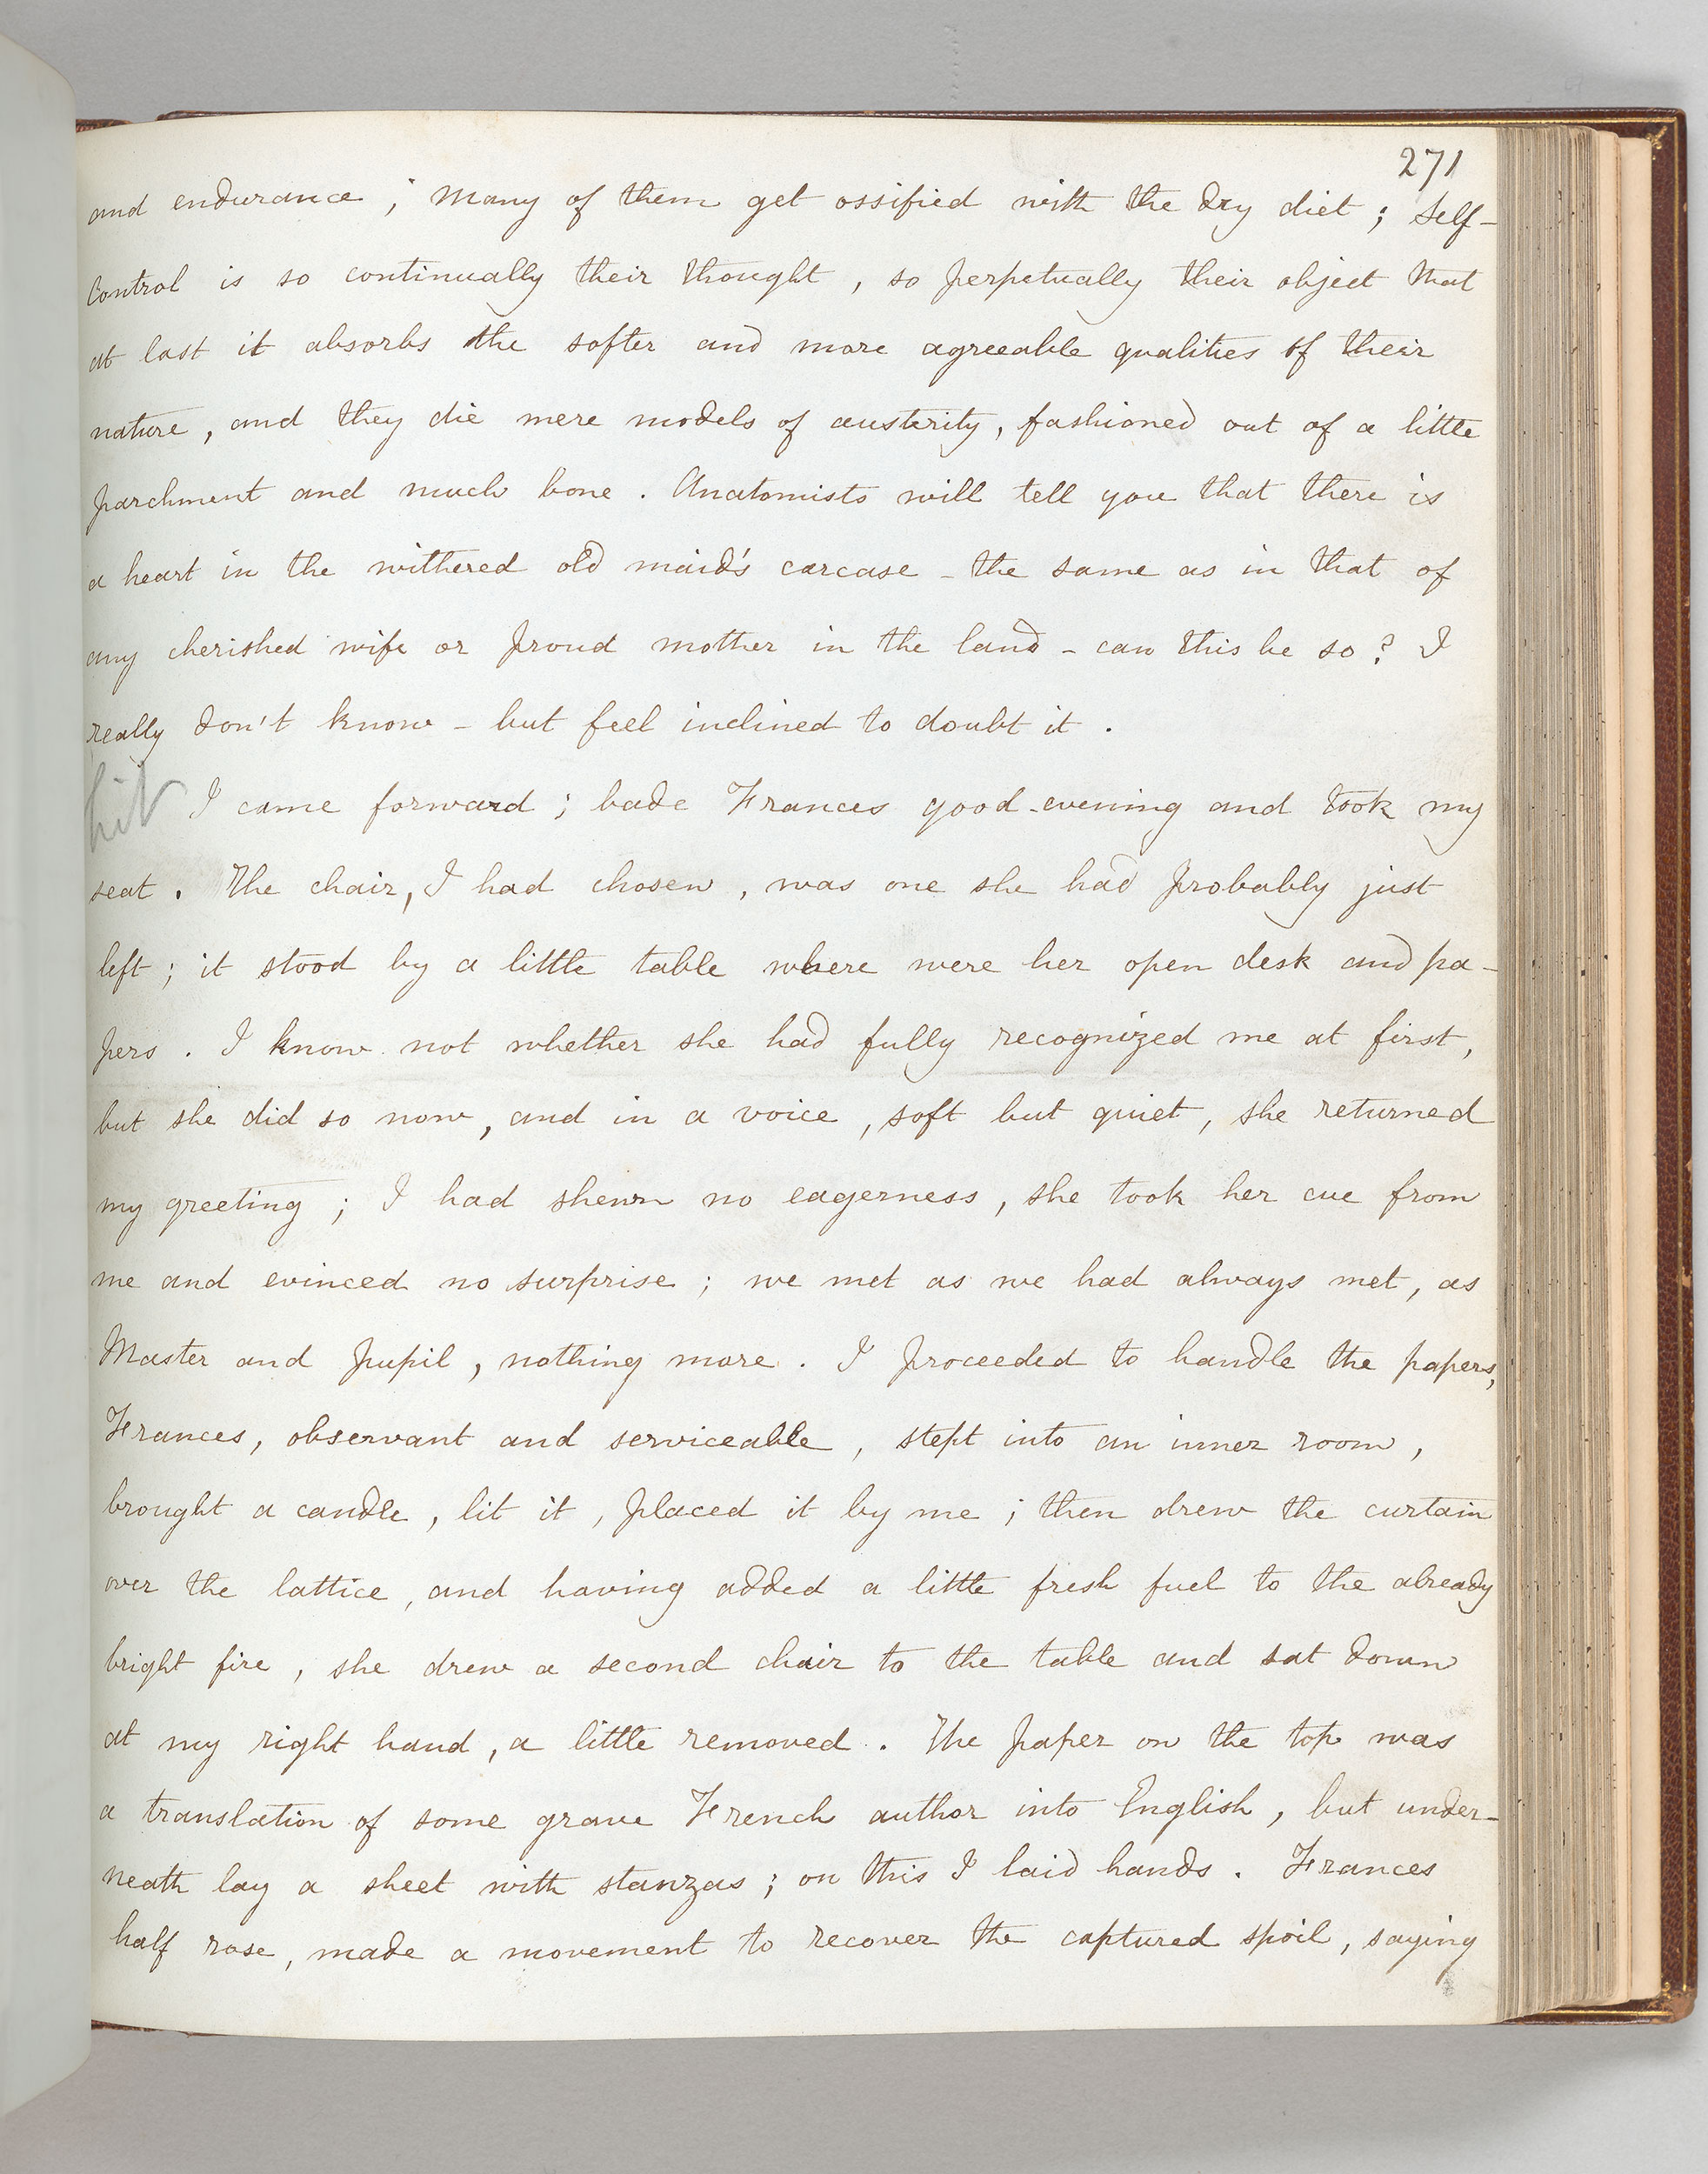 271
and endurance ; many of them get ossified with the dry diet ; self-
control is so continually their thought , so perpetually their object that
at last it absorbs the softer and more agreeable qualities of their
nature , and they die mere models of austerity, fashioned out of a little
parchment and much bone . Anatomists will tell you that there is
a heart in the withered old maid's carcase - the same as in that of
any cherished wife or proud mother in the land - can this be so ? I
really don't know - but feel inclined to doubt it .
I came forward ; bade Frances good-evening and took my
seat . The chair, I had chosen , was one she had probably just
left ; it stood by a little table where were her open desk and pa-
pers . I know not whether she had fully recognized me at first,
but she did so now, and in a voice , soft but quiet , she returned
my greeting ; I had shewn no eagerness , she took her cue from
me and evinced no surprise ; we met as we had always met , as
Master and pupil , nothing more . I proceeded to handle the papers,
Frances, observant and serviceable , stept into an inner room ,
brought a candle , lit it , placed it by me ; then drew the curtain
over the lattice , and having added a little fresh fuel to the already
bright fire , she drew a second chair to the table and sat down
at my right hand , a little removed . The paper on the top was
a translation of some grave French author into English , but under-
neath lay a sheet with stanzas ; on this I laid hands . Frances
half rose , made a movement to recover the captured spoil , saying